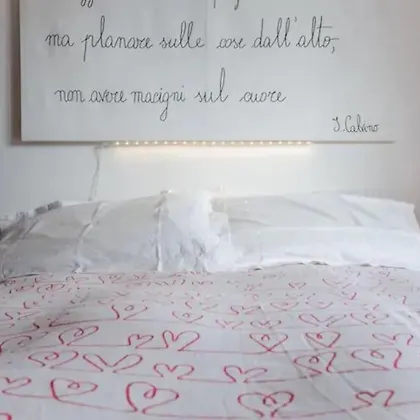 ma planare sulle cose dall'alto,
non avere macigni sul cuore
I. Calvino